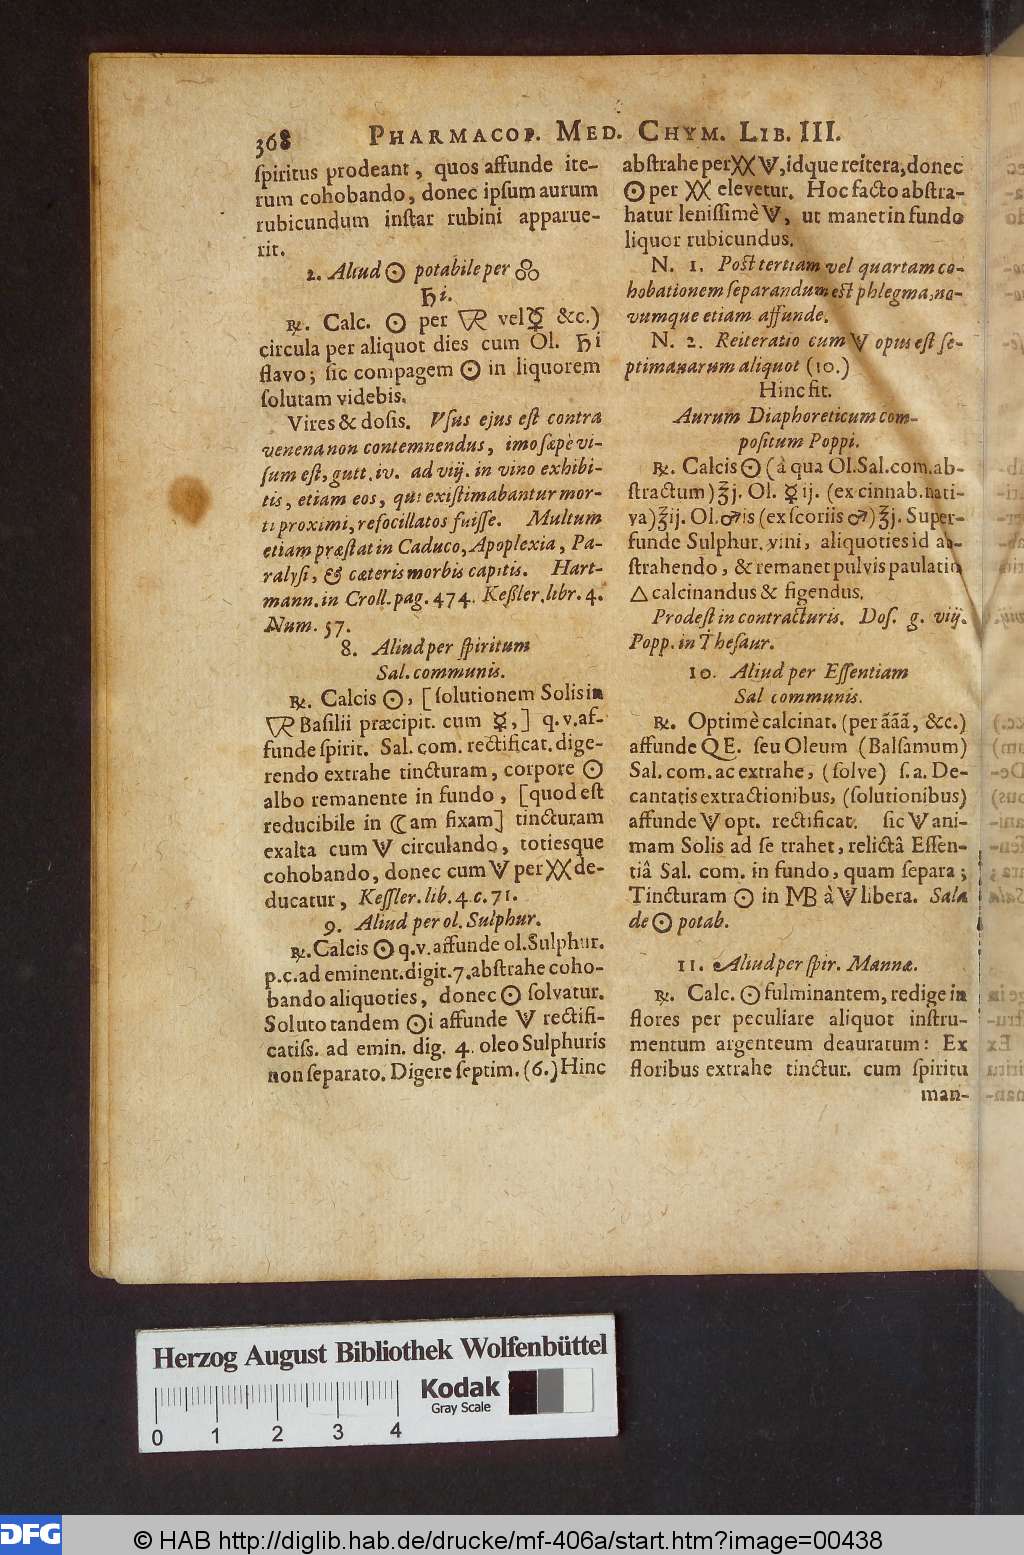 368 PHARMACOP. MED. CHYM. LIB. III.
spiritus prodeant, quos affunde ite-
rum cohobando, donec ipsum aurum
rubicundum instar rubini apparue-
rit.
2. Aliud ☉ potabile per
♄i.
℞. Calc. ☉ per 🜆 vel ☿ &c.)
circula per aliquot dies cum Ol. ♄i
flavo; sic compagem ☉ in liquorem
solutam videbis.
Vires & dosis. Vsus ejus est contra
venena non contemnendus, imo sæpè vi-
sum est, gutt. iv. ad viij. in vino exhibi-
tis, etiam eos, qui existimabantur mor-
ti proximi, refocillatos fuisse. Multum
etiam præstat in Caduco, Apoplexia, Pa-
ralysi, & cæteris morbis capitis. Hart-
mann. in Croll. pag. 474. Keßler. libr. 4.
Num. 57.
8. Aliud per spiritum
Sal. communis.
℞. Calcis ☉, [solutionem Solis in
🜆 Basilii præcipit. cum ☿,] q. v. af-
funde spirit. Sal. com. rectificat. dige-
rendo extrahe tincturam, corpore ☉
albo remanente in fundo, [quod est
reducibile in ☾am fixam] tincturam
exalta cum V circulando, totiesque
cohobando, donec cum V per XX de-
ducatur, Kessler. lib. 4. c. 71.
9. Aliud per ol. Sulphur.
℞. Calcis ☉ q. v. affunde ol. Sulphur.
p. c. ad eminent. digit. 7. abstrahe coho-
bando aliquoties, donec ☉ solvatur.
Soluto tandem ☉i affunde V rectifi-
catiss. ad emin. dig. 4. oleo Sulphuris
non separato. Digere septim. (6.) Hinc
abstrahe per XX V, idque reitera, donec
☉ per XX elevetur. Hoc facto abstra-
hatur lenissimè V, ut manet in fundo
liquor rubicundus.
N. 1. Post tertiam vel quartam co-
hobationem separandum est phlegma, no-
vumque etiam affunde.
N. 2. Reiteratio cum V opus est se-
ptimanarum aliquot (10.)
Hinc fit.
Aurum Diaphoreticum com-
positum Poppi.
℞. Calcis ☉ (à qua Ol. Sal. com. ab-
stractum) ℥j. Ol. ☿ ij. (ex cinnab. nati-
va) ℥ij. Ol. ♂is (ex scoriis ♂) ℥j. Super-
funde Sulphur. vini, aliquoties id ab-
strahendo, & remanet pulvis paulatim
△ calcinandus & figendus.
Prodest in contracturis. Dos. g. viij.
Popp. in Thesaur.
10. Aliud per Essentiam
Sal communis.
℞. Optimè calcinat. (per ããã, &c.)
affunde QE. seu Oleum (Balsamum)
Sal. com. ac extrahe, (solve) s. a. De-
cantatis extractionibus, (solutionibus)
affunde V opt. rectificat. sic V ani-
mam Solis ad se trahet, relictâ Essen-
tiâ Sal. com. in fundo, quam separa;
Tincturam ☉ in MB à V libera. Sala
de ☉ potab.
11. Aliud per spir. Mannæ.
℞. Calc. ☉ fulminantem, redige in
flores per peculiare aliquot instru-
mentum argenteum deauratum: Ex
floribus extrahe tinctur. cum spiritu
man-
Herzog August Bibliothek Wolfenbüttel
Kodak
Gray Scale
0 1 2 3 4
DFG © HAB http://diglib.hab.de/drucke/mf-406a/start.htm?image=00438